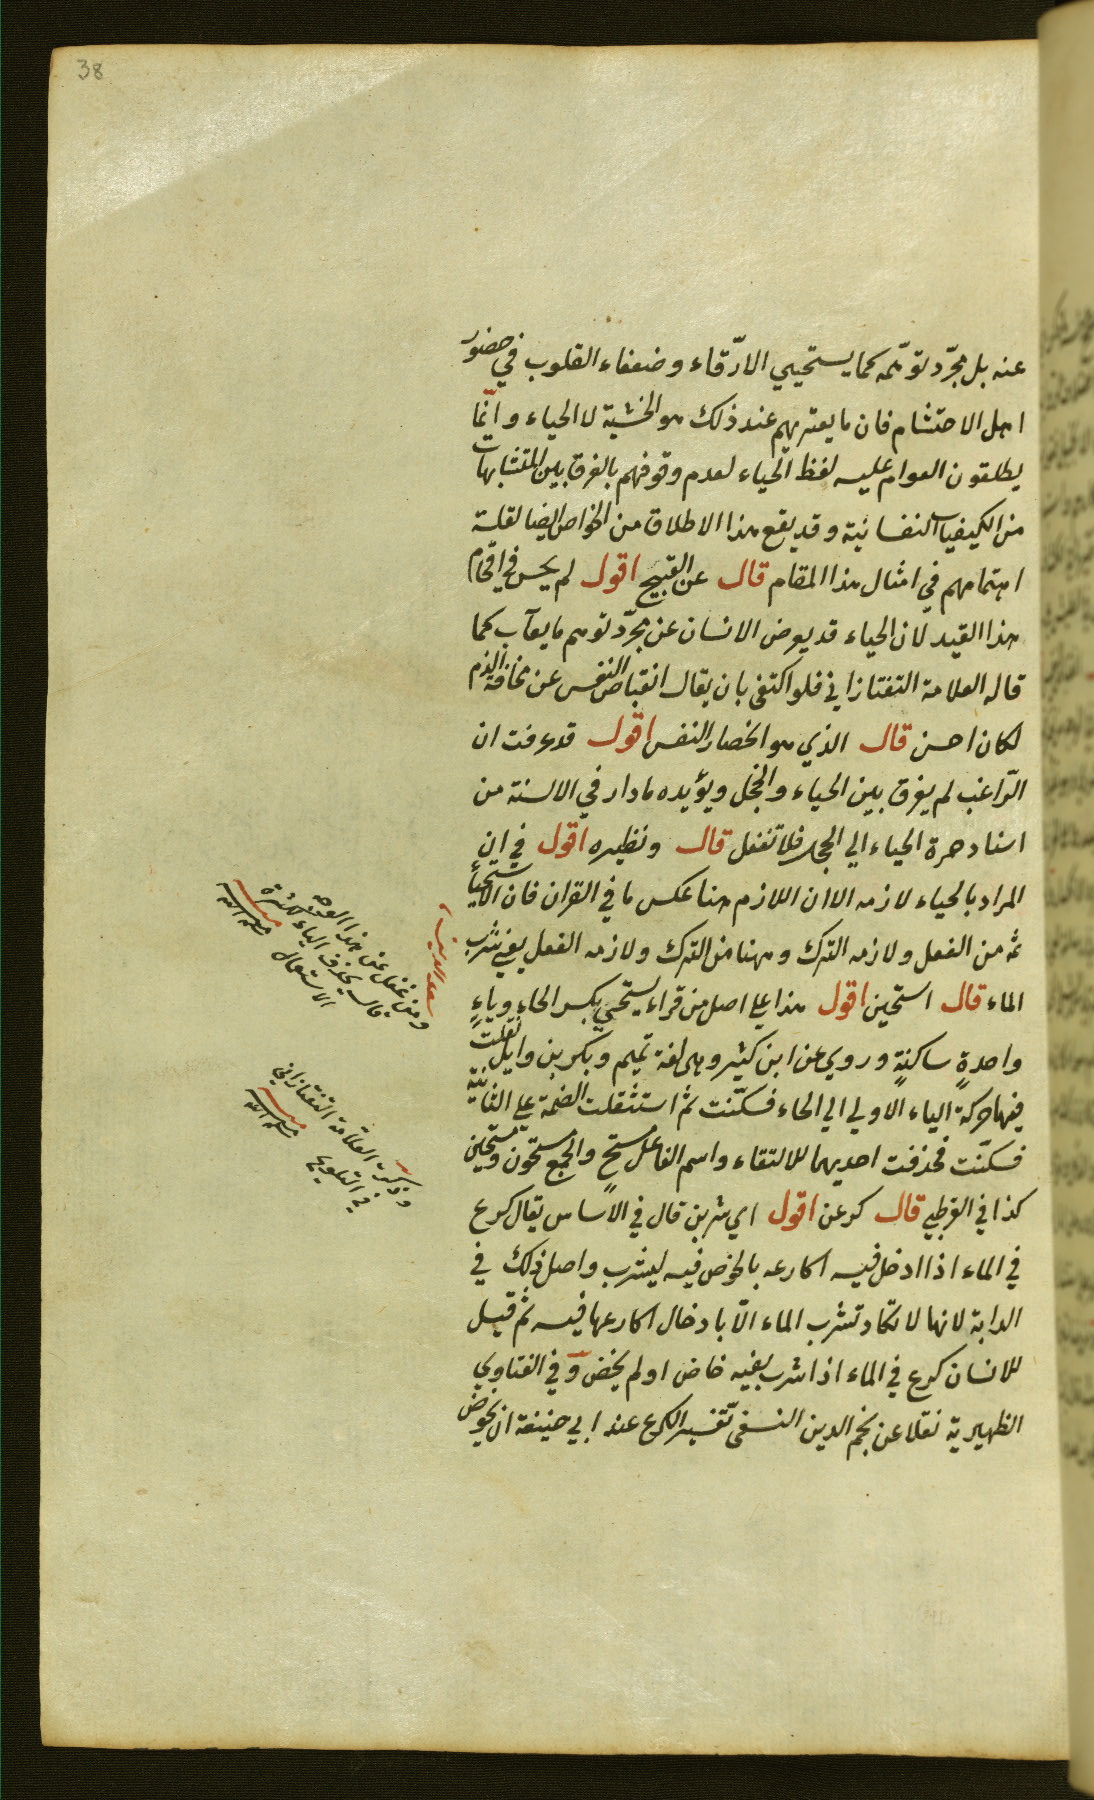 38
عنه بل مجرّد توهّمه كما يستحيي الارّقاء وضعفاء القلوب في حضور
اهل الاحتشام فان ما يعتريهم عند ذلك هو الخشية لا الحياء وانّما
يطلقون العوام عليه لفظ الحياء لعدم وقوفهم بالفرق بين المتشابهات
من الكيفيات النفسانية وقد يقع هذا الاطلاق من الخواص ايضا لقلة
اهتمامهم في امثال هذا المقام قال عن القبيح اقول لم يحسن في اقحام
هذا القيد لان الحياء قد يعرض الانسان عن مجرّد توهم ما يعاب كما
قاله العلامة التفتازاني فلو اكتفى بان يقال انقباض النفس عن مخافة الذم
لكان احسن قال الذي هو انحصار النفس اقول قد عرفت ان
الرّاغب لم يفرق بين الحياء والخجل ويؤيده ما دار في الالسنة من
اسناد حمرة الحياء الي الخجل فلا تغفل قال ونظيره اقول في ان
المراد بالحياء لازمه الا ان اللازم هنا عكس ما في القران فان الاستحياء
ثمه من الفعل ولازمه الترك وههنا من الترك ولازمه الفعل يعني شرب
الماء قال استحين اقول هذا علي اصل من قراء يستحي بكسر الحاء وياءٍ
واحدةٍ ساكنةٍ وروي عن ابن كثير وهي لغة تميم وبكر بن وايل نقلت
فيها حركة الياء الاولي الي الحاء فسكّنت ثم استثقلت الضمة علي الثانية
فسكّنت فحذفت احديهما للالتقاء واسم الفاعل مستحٍ والجمع مستحون ومستحين
كذا في القرطبي قال كرعن اقول اي شربن قال في الاساس يقال كرع
في الماء اذا ادخل فيه اكارعه بالخوض فيه ليشرب واصل ذلك في
الدابة لانها لا تكاد تشرب الماء الّا بادخال اكارعها فيه ثم قيل
للانسان كرع في الماء اذا شرب بفيه خاض او لم يخض وفي الفتاوي
الظهيرية نقلا عن نجم الدين النسفي تفسير الكرع عند ابي حنيفة ان يخوض
سعد الدين
ومن غفل عن هذا الوجه
قال بحذف الياء لكثرة
الاستعمال
منه
رحمه الله
وذكره العلامة التفتازاني
في التلويح
منه
رحمه الله